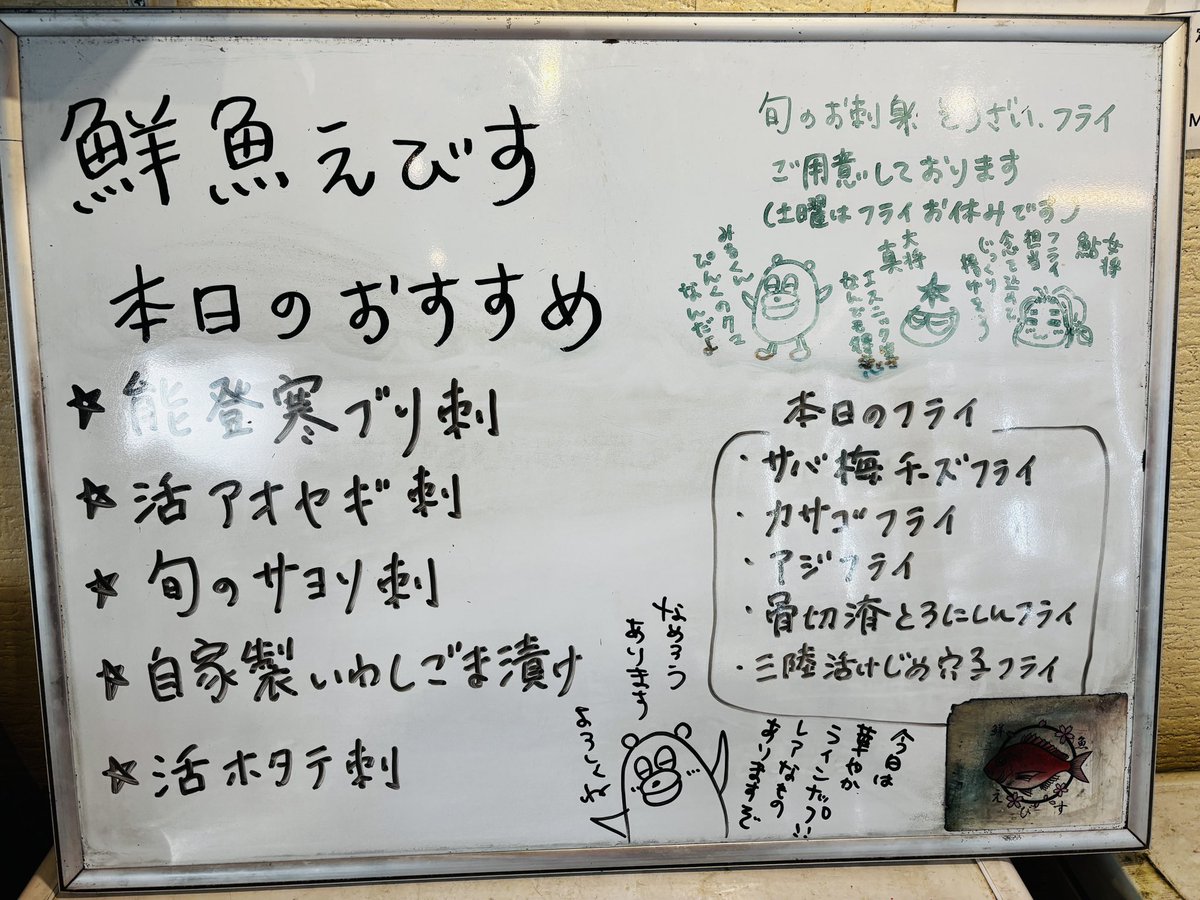 鮮魚えびす
本日のおすすめ
★能登寒ブリ刺
★活アオヤギ刺
★旬のサヨリ刺
★自家製いわしごま漬け
★活ホタテ刺
旬のお刺身 そうざい、フライ
ご用意しております
(土曜はフライお休みです)
みるくん
ぴんくのクマ
なんだよ
大将
真
エスニック
なんでも得意
フライ
担当
念でじこめて
じっくり
揚げもろ
女将
鮎
本日のフライ
・サバ梅チーズフライ
・カサゴフライ
・アジフライ
・骨切済とろにしんフライ
・三陸活けじめ穴子フライ
なめろう
あります
よろしくね
今日は
華やか
ラインナップ!!
レアなもの
ありますぞ
鮮魚
えびす